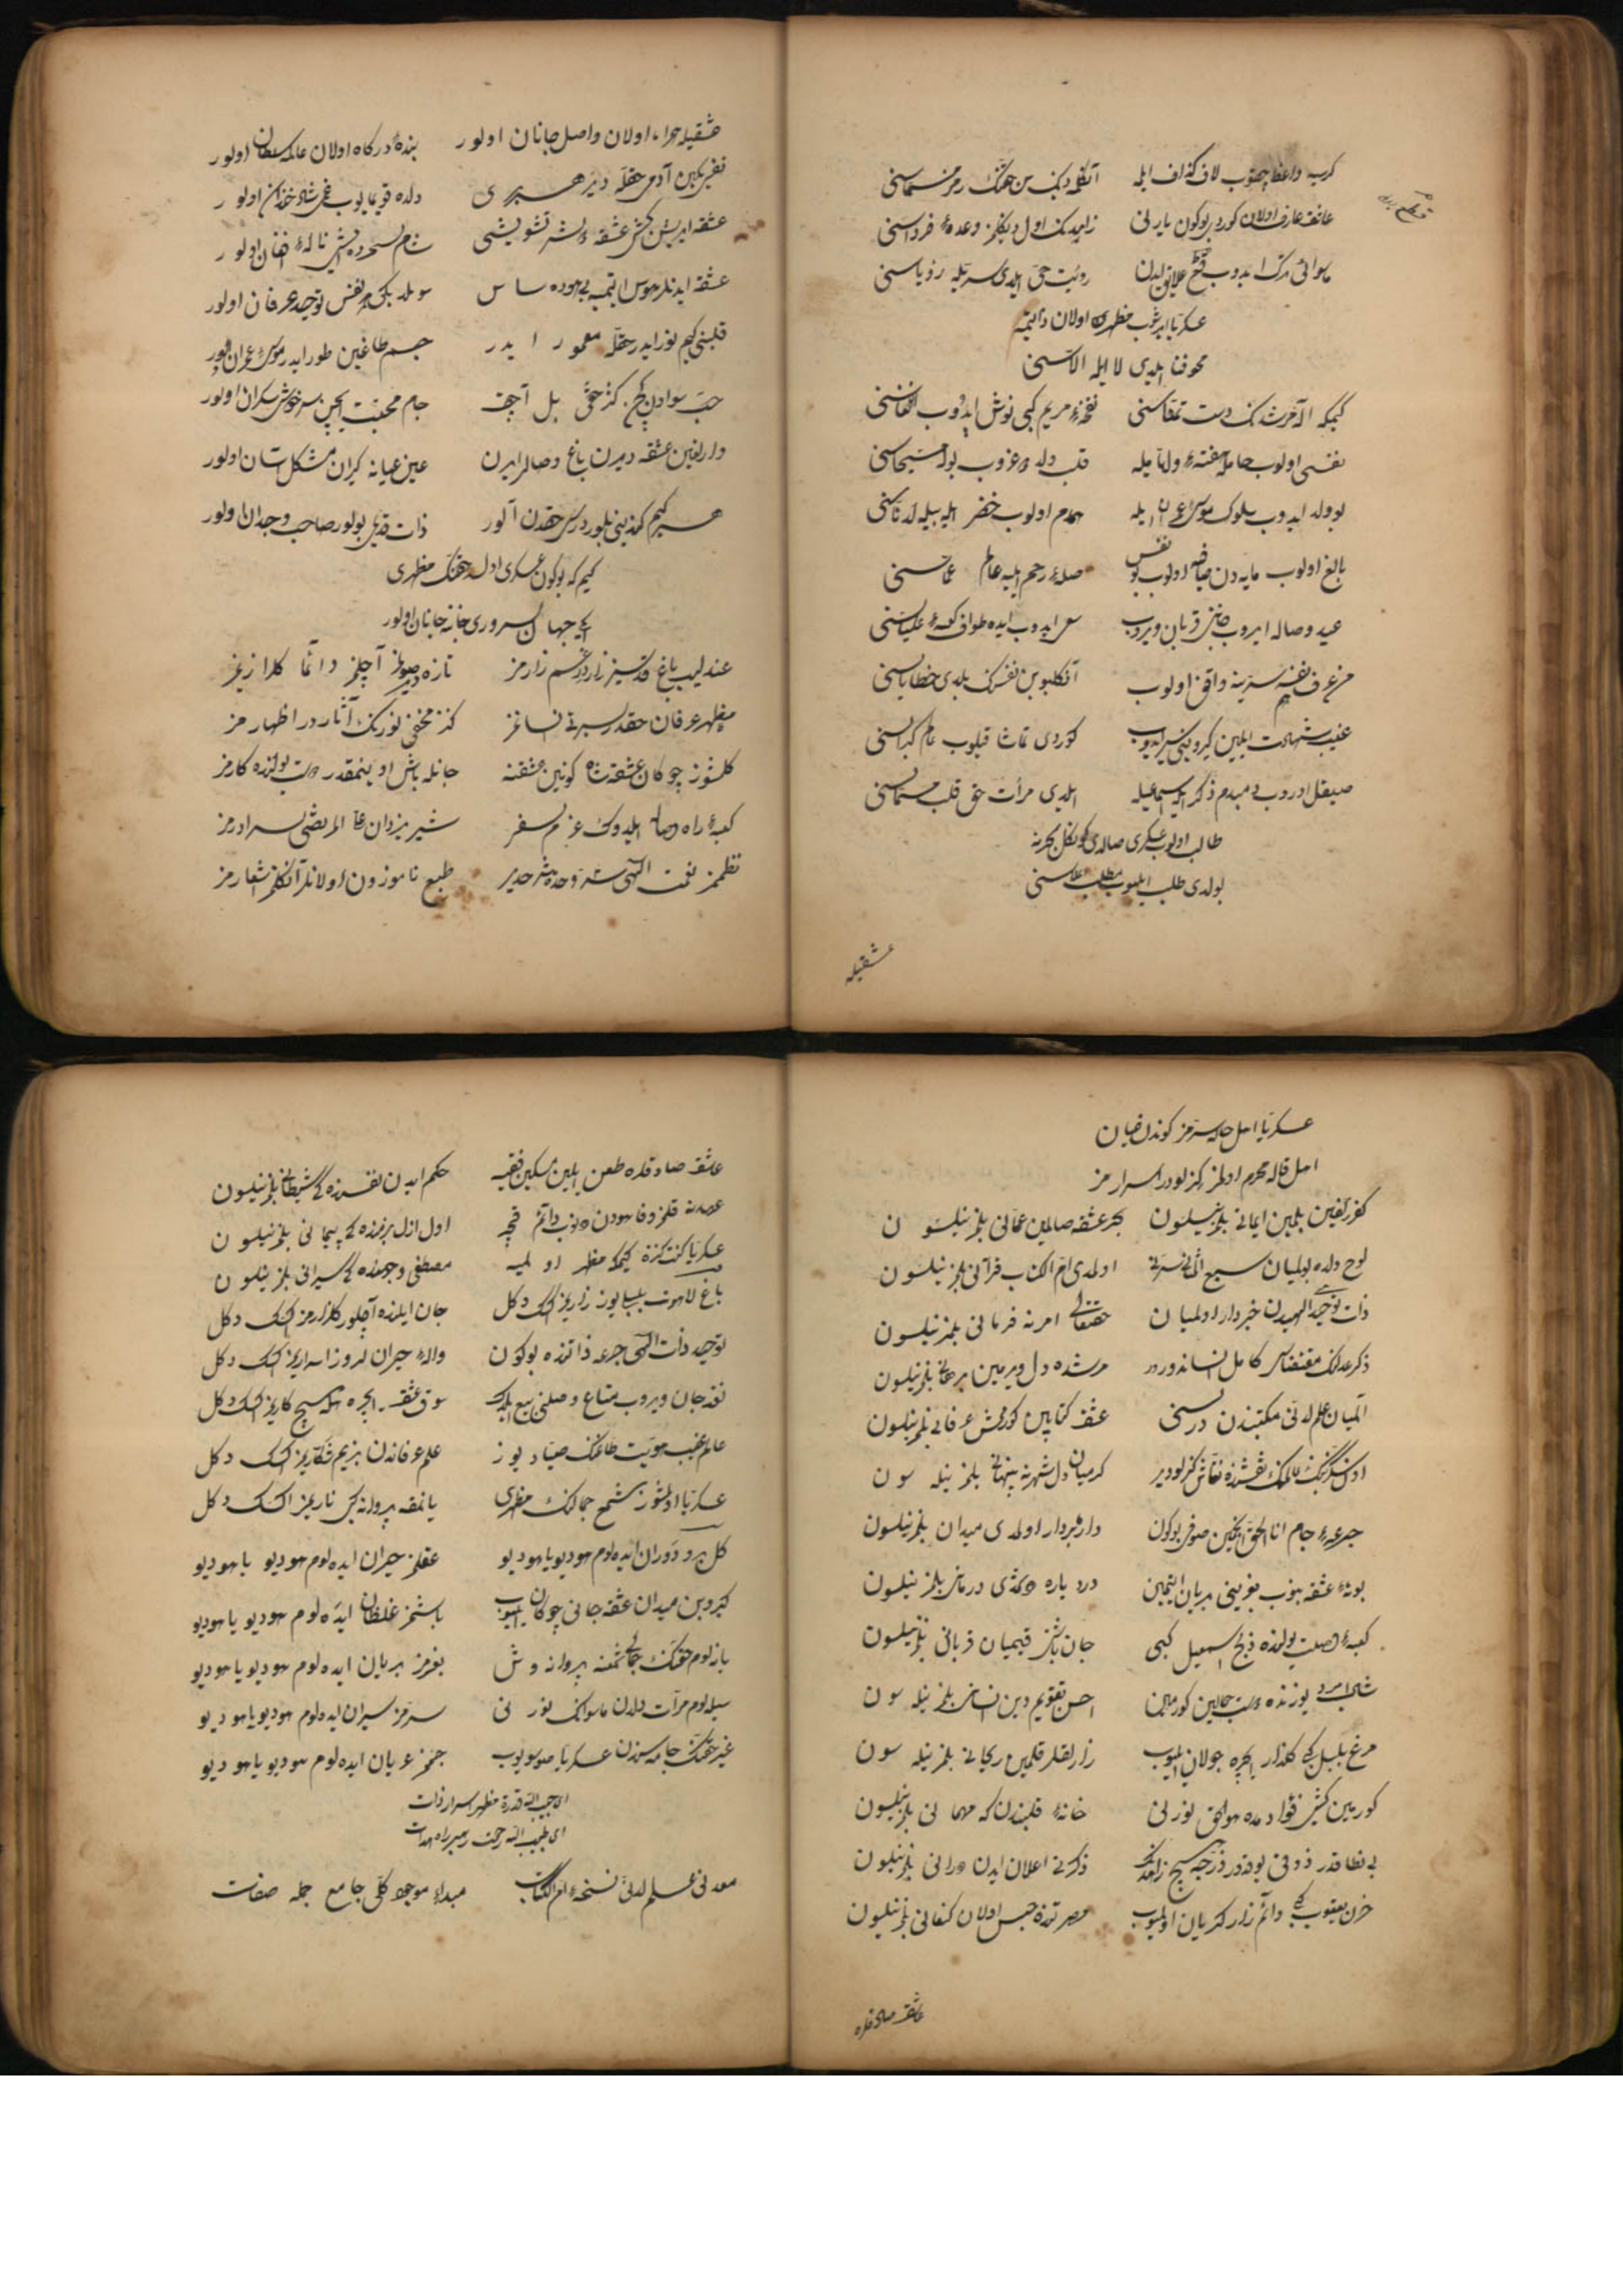 كرسيه واعظ چقوب لاف كذاف ايله آنكله ديك سن حقك رمز مسماسنى
عاشق عارف اولان كوردى بوكون يارنى زاهدك اول ديكلمز وعدهٔ فرداسنى
ماسوائى ترك ايدوب قطع علايق ايدن رؤيت حق ايلدى سريله رؤياسنى
عسكريا ايروب مظهرى اولان دائيمه
محو فنا ايلدى لا ايله الاسنى
كيمكه اله مرشدك دست تمناسنى نفخهٔ مريم كبى نوش ايدوب انفاسنى
نفسى اولوب حامله ايله قلب ولد طوغروب بولدى مسيحاسنى
بو يوله ايدوب سلوك موسى عمران ايله همدم اولوب خضر ايله بيله لدناسنى
بالغ اولوب مايه دن صافى اولوب بو نفس صلهٔ رحم ايليه عالم عماسنى
عيد وصاله ايروب جاننى قربان ويروب سعى ايدوب ايده طواف كعبهٔ علياسنى
من عرف نفسه سرينه واقف اولوب آنكلیوبن نفسنك بلدى خطاياسنى
غيب شهادت ايلين كيروبنى سير ايدوب كوردى تماشا قيلوب عالم كبراسنى
صيقل اوروب دمبدم ذكر ايله اسمايله ايلدى مرأت حق قلب مسماسنى
طالب اولوب عسكرى صالدى كوكل بحرينه
بولدى طلب ايليوب مطلب اعلاسنى
عشقيله
عشقيله همراه اولان واصل جانان اولور بندهٔ دركاه اولان عالمه سلطان اولور
نفس يكين آدمى حقه دير هبرى دلده قويمايوب غمى شاد خندان اولور
عشقه ايريشن كشى عشقه دوشر تشويشى شام سحرده ايشى نالهٔ افغان اولور
عشقه ايدنلر هوس ايتميه بيهوده ساس سويلمه بيك نفس توحيد عرفان اولور
قلبنى كيم نور ايدر حقله معمور ايدر جسم طاغين طور ايدر موسىٔ عمران اولور
حب سوادن كچن كنز حقى بل آچن جام محبت ايچن سرخوش سكران اولور
وارلغين عشقه ويرن باغ وصاله ايرن عين عيانه كيرن مشكل آسان اولور
هر كيم كندينى بلور درسى حقدن آلور ذات قديمى بولور صاحب وجدان اولور
كيم كه بوكون عسكرى اوله حقك مظهرى
ايكى جهان سرورى خانهٔ جانان اولور
عندليب باغ قدسيز زار در غم زارمز تازه آچلمز دائما كلزاريمز
مظهر عرفان حقدر سيرتى انسانمز كنز مخفى نورينك آثار در اظهارمز
كلشوز چوكان عشقه تا كونين عشقنه جانله باش اوينمقدر دوست يولنده كارمز
كعبهٔ راه وصاله ايلدوك عزم سفر شير يزدان على المرتضى سردارمز
نظممز نعمت الهى سر وحدت شرحيدر طبع ناموزون اولانلر آنكلمز اشعارمز
عسكريا اهل حاله سرمز كوندن عيان
اهل قاله محرم اولمز كيزلودر اسرارمز
كفر كفين بلمين ايمانى بلمز نيلسون بحر عشقه صالمين عمانى بلمز نيلسون
لوح دلده بولميان سبع المثانى سرنى اولمدى ام الكتاب قرآنى بلمز نيلسون
ذات توحيد الهيدن خبردار اولميان حقتعالى امرنه فرمانى بلمز نيلسون
ذكر علمك مقتضاسى كامل انساندرور مرشده دل ويرمين برهانى بلمز نيلسون
المیان علم لدنى مكتبندن درسنى عشق كتابين كورمش عرفانى بلمز نيلسون
نقشنده نقاش كيزلودير كرميان دل شهرنه پنهانى بلمز نيلسون
جرعهٔ جام انا الحق ايچمين صوفى بوكون دار بردار اولمدى ميدان بلمز نيلسون
بوتهٔ عشقه يانوب بغرينى بريان ايتمين درد ياره دوشدى درمانى بلمز نيلسون
كعبهٔ وصلت يولنده ذبح اسمعيل كبى جان باش قيميان قربانى بلمز نيلسون
شاب امرد يوزنده دوست جمالين كورمين احسن تقويم دين انسانى بلمز نيلسون
مرغ بلبل كبى كلزار ايچره جولان ايليوب زارلقلر قلمين ريحانى بلمز نيلسون
كورمين كشى فؤادنده هو الحق نورنى خانهٔ قلبندن كه مهمانى بلمز نيلسون
ذوقى يوقدر ذره جه هيچ زاهدك ذكرنى اعلان ايدن بلمز نيلسون
حزن يعقوب كبى دائم زار كريان اولميوب مصر تنده حبس اولان كنعانى بلمز نيلسون
عاشق صادقلره
عاشق صادقلره طعن ايلين مسكين فقيه حكم ايدن نفسنده كى شيطانى بلمز نيلسون
عهدنه قلمز وفا سودن دونوب دائم قچر اول ازل بزمنده كى پيمانى بلمز نيلسون
عسكريا كنت كنزه كيمكه مظهر اولميه مصطفى وجهنده كى سيرانى بلمز نيلسون
باغ لاهوت بلبليوز زاريمز اكسك دكل جان ايلنده آچلور كلزارمز اكسك دكل
توحيد ذات الهى جرعه ذاتنده بوكون واله حيران لروز اسراريمز اكسك دكل
نقد جان ويروب متاع وصلنى بيع ايلدك سوق عشق ايچره هيچ كاريمز اكسك دكل
عالم غيب هويت طاغنك صياديوز علم عرفاندن بزيم شكاريمز اكسك دكل
عسكريا اولمشوز شمع جمالنك مظهرى يانمغه پروانه كبى ناريمز اكسك دكل
كل برو دوران ايده لوم هوديو ياهوديو عقلمز حيران ايده لوم هوديو ياهوديو
كيروبن ميدان عشقه جانى چوكان ايليوب باشمز غلطان ايده لوم هوديو ياهوديو
يانه لوم حقك جمالى شمعنه پروانه وش بغرمز بريان ايده لوم هوديو ياهوديو
سيله لوم مرآت دلدن ماسوانك نورنى سرمز سيران ايده لوم هوديو ياهوديو
غير حقك جامه سندن عسكريا صويونوب جسممز عريان ايده لوم هوديو ياهوديو
اى حبيب الله قدرة مظهر اسرار ذات
اى طبيب الله رحمت رهبر راه هدات
معدنى علم لدنى نسخهٔ ام الكتاب مبداء موجود كلى جامع جمله صفات